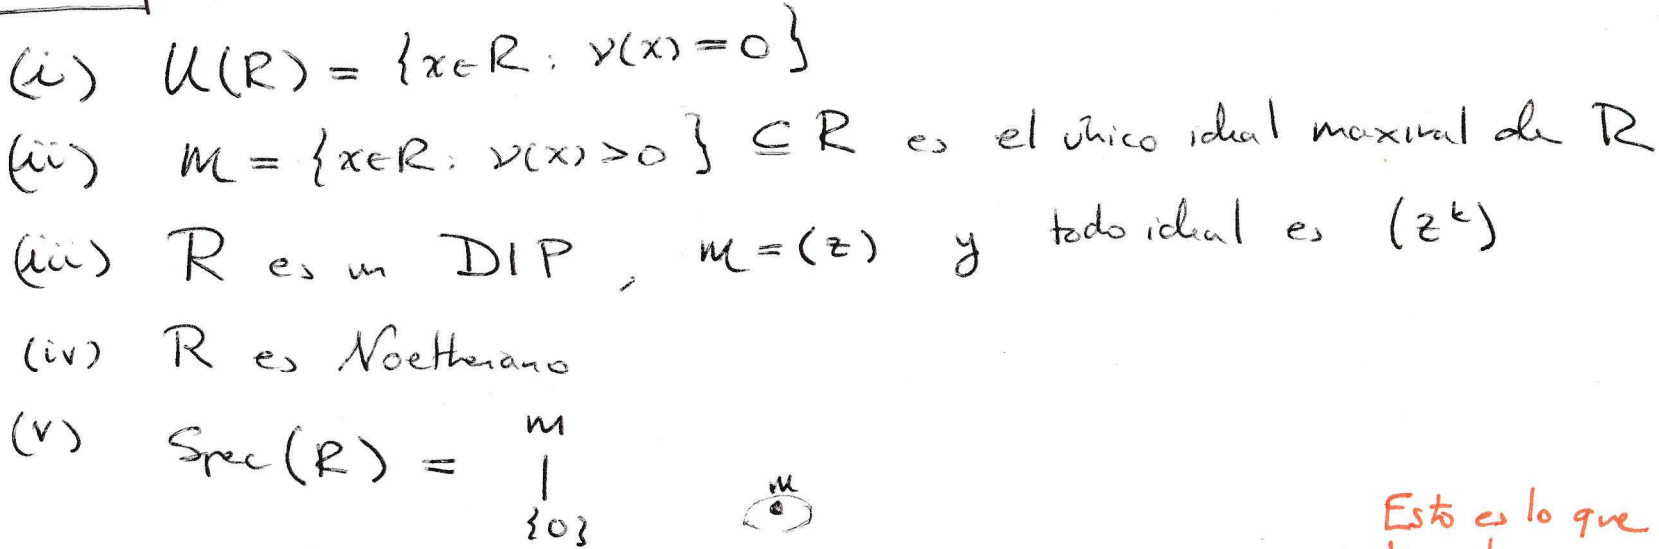 (i) U(R) = {x∈R : ν(x) = 0}
(ii) m = {x∈R : ν(x) > 0} ⊆ R es el único ideal maximal de R
(iii) R es un DIP, m = (z) y todo ideal es (z^k)
(iv) R es Noetheriano
(v) Spec(R) =
m
|
{0}
m
Esto es lo que